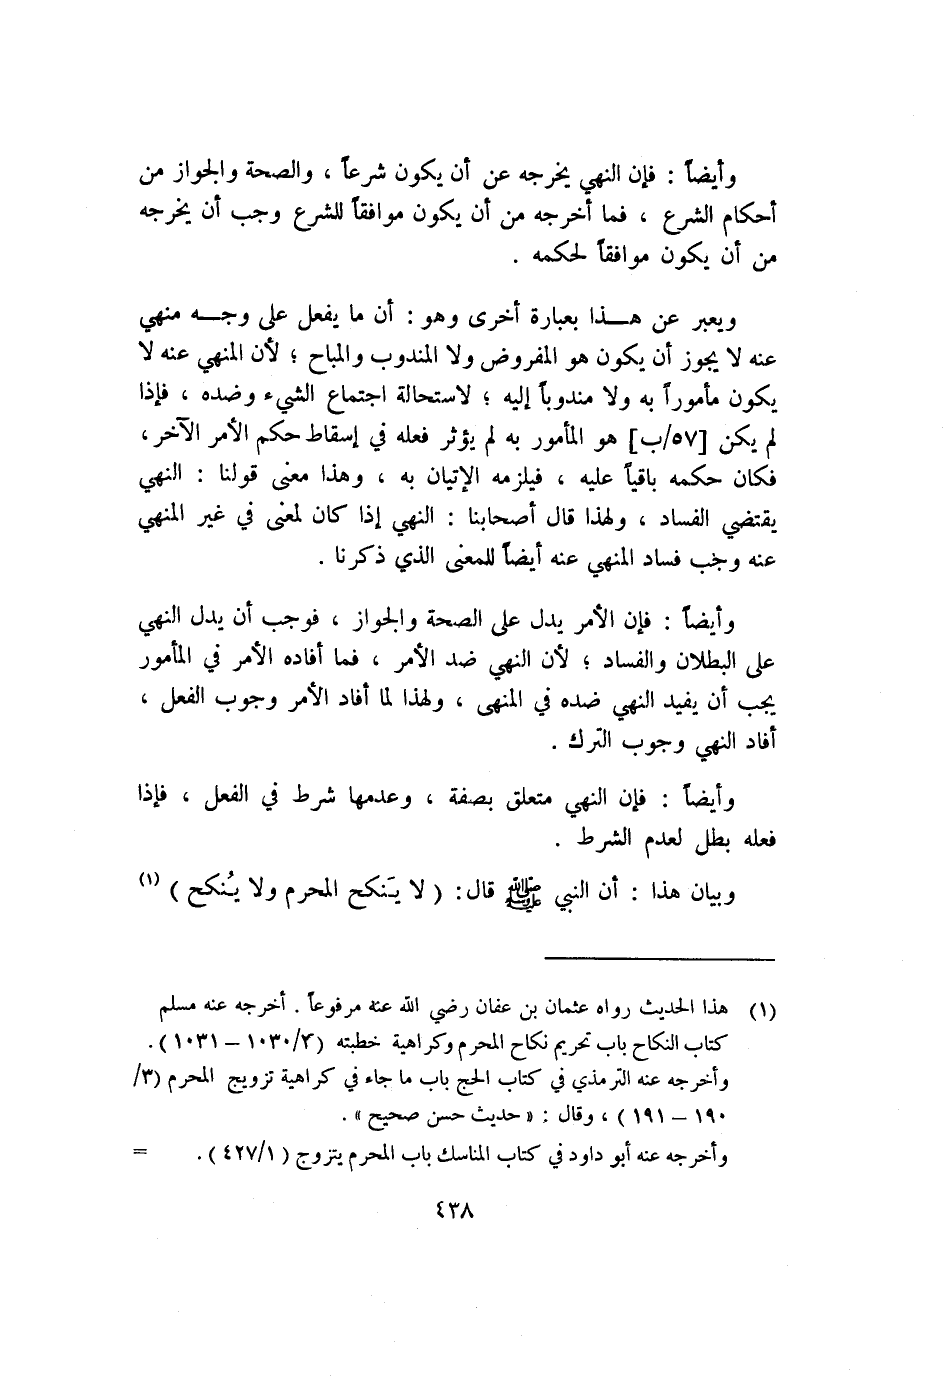 وأيضاً : فإن النهي يخرجه عن أن يكون شرعاً ، والصحة والجواز من
أحكام الشرع ، فما أخرجه من أن يكون موافقاً للشرع وجب أن يخرجه
من أن يكون موافقاً لحكمه .
ويعبر عن هـــذا بعبارة أخرى وهو : أن ما يفعل على وجـــه منهي
عنه لا يجوز أن يكون هو المفروض ولا المندوب والمباح ؛ لأن المنهي عنه لا
يكون مأموراً به ولا مندوباً إليه ؛ لاستحالة اجتماع الشيء وضده ، فإذا
لم يكن [٥٧/ب] هو المأمور به لم يؤثر فعله في إسقاط حكم الأمر الآخر ،
فكان حكمه باقياً عليه ، فيلزمه الإتيان به ، وهذا معنى قولنا : النهي
يقتضي الفساد ، ولهذا قال أصحابنا : النهي إذا كان لمعنى في غير المنهي
عنه وجب فساد المنهي عنه أيضاً للمعنى الذي ذكرنا .
وأيضاً : فإن الأمر يدل على الصحة والجواز ، فوجب أن يدل النهي
على البطلان والفساد ؛ لأن النهي ضد الأمر ، فما أفاده الأمر في المأمور
يجب أن يفيد النهي ضده في المنهى ، ولهذا لما أفاد الأمر وجوب الفعل ،
أفاد النهي وجوب الترك .
وأيضاً : فإن النهي متعلق بصفة ، وعدمها شرط في الفعل ، فإذا
فعله بطل لعدم الشرط .
وبيان هذا : أن النبي ﷺ قال : ( لا يَنكح المحرم ولا يُنكح ) (١)
(١) هذا الحديث رواه عثمان بن عفان رضي الله عنه مرفوعاً . أخرجه عنه مسلم
كتاب النكاح باب تحريم نكاح المحرم وكراهية خطبته (٢/١٠٣٠ – ١٠٣١) .
وأخرجه عنه الترمذي في كتاب الحج باب ما جاء في كراهية تزويج المحرم (٣/
١٩٠ – ١٩١) ، وقال : « حديث حسن صحيح » .
وأخرجه عنه أبو داود في كتاب المناسك باب المحرم يتزوج (١/٤٢٧) . =
٤٣٨